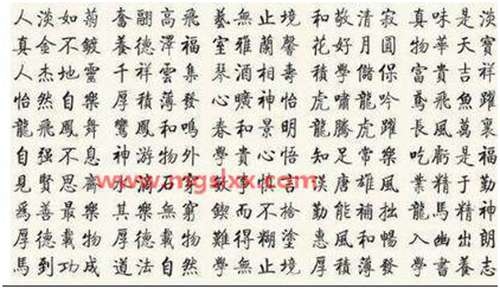 人淡如菊 奮翮高飛 藝無止境 和敬清寂 真味是淡
真金不鍍 養德澤福 室雅蘭馨 花好月圓 物華天寶
人杰地靈 千祥雲集 琴 學儲 富貴吉祥
怡然自樂 厚積薄發 曠神怡 虎嘯龍吟 鳶飛魚躍
龍飛鳳舞 鸞鳳和鳴 春和景明 龍騰虎躍 長風萬裏
自强不息 神游物外 學貴心悟 知足常樂 吃虧是福
見賢思齊 水滴石穿 漢唐雄風 業精于勤
www.mgslxx.com
為善最樂 其樂無窮 鍥而不捨 勤能補拙 龍馬精神
厚德載物 厚德載物 難得糊塗 惠風和暢 入幽出朗
馬到功成 道法自然 學無止境 厚積薄發 學書養志